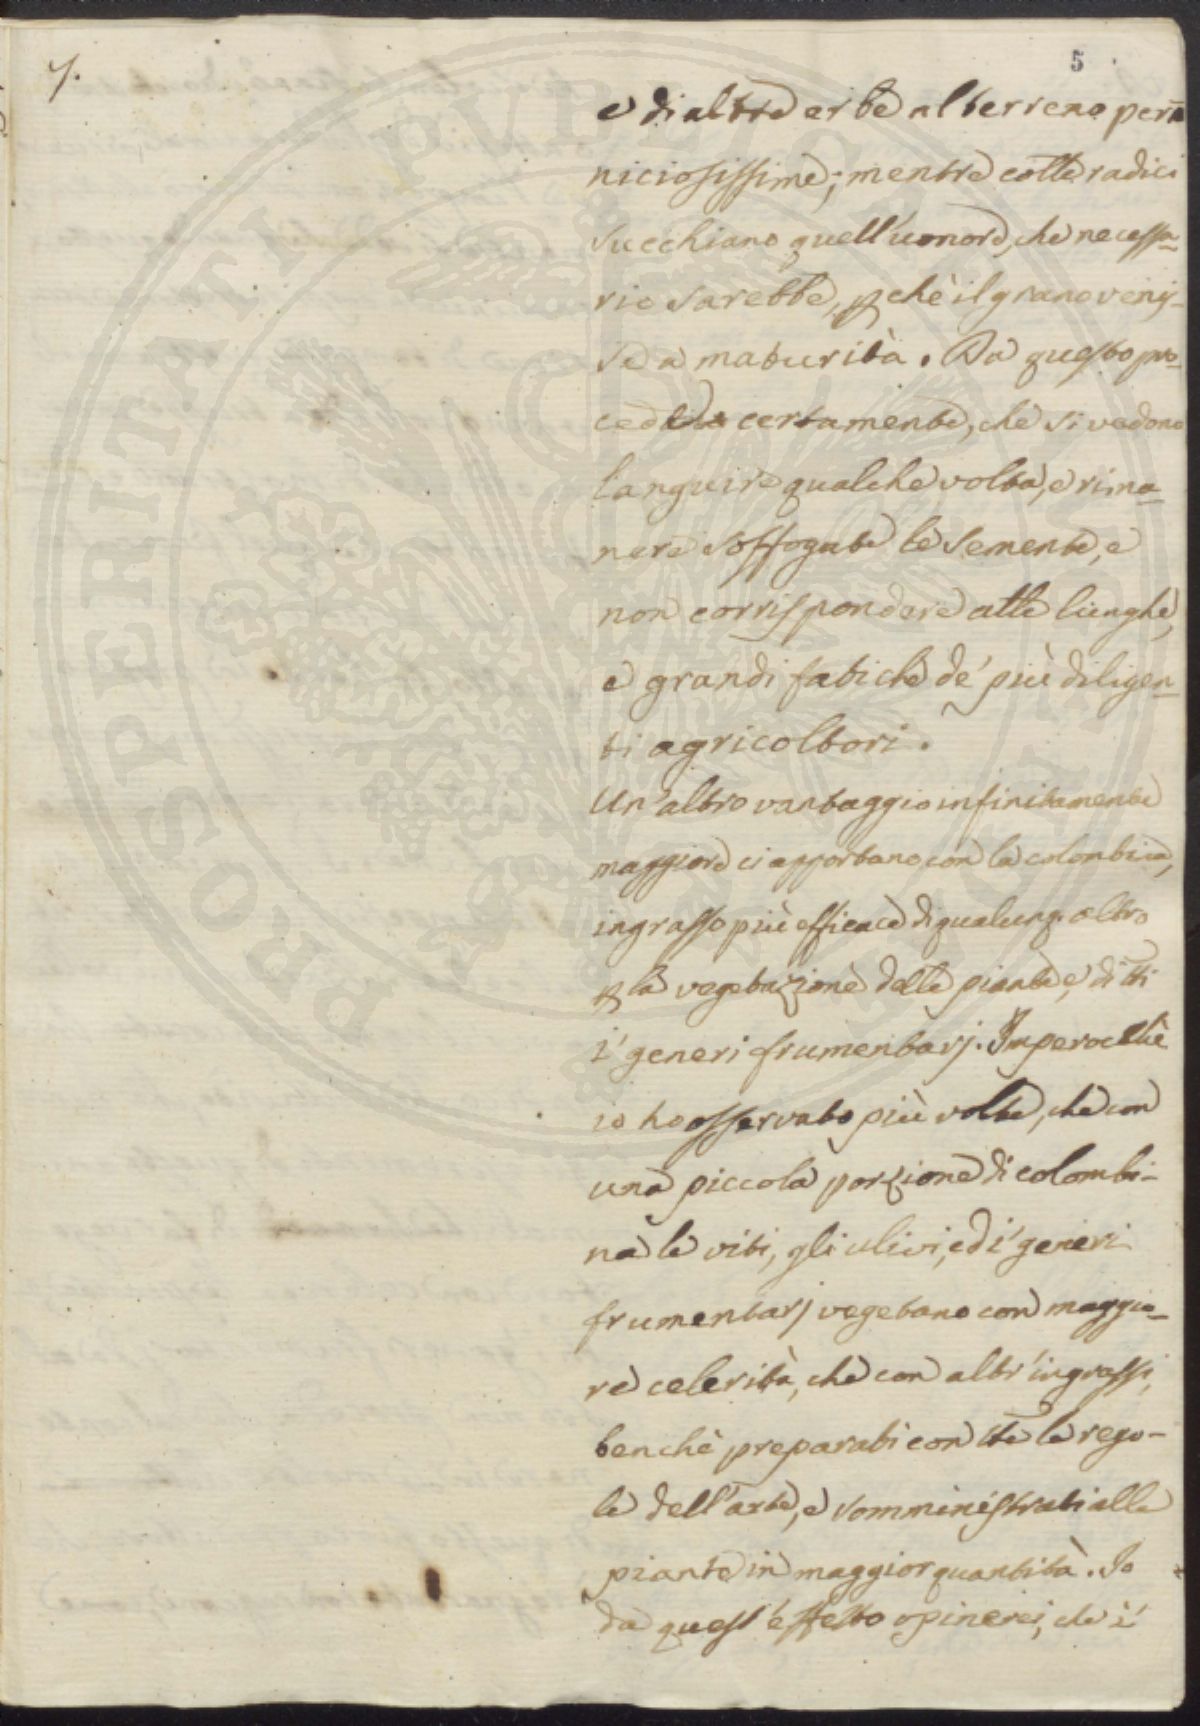 7.
5
e di altre erbe al terreno per=
niciosissime; mentre colle radici
succhiano quell'umore, che necessa=
rio sarebbe, pchè il grano venis=
se a maturità. Da questo pro=
cede certamente, che si vedono
languire qualche volta, e rima=
nere soffogate le semente, e
non corrispondere alle lunghe,
e grandi fatiche de' più diligen=
ti agricoltori.
Un'altro vantaggio infinitamente
maggiore ci apportano con la colombina,
ingrasso più efficace di qualunq. altro
p la vegetazione delle piante, e di tti
i' generi frumentarj. Imperocchè
io ho osservato più volte, che con
una piccola porzione di colombi-
na le viti, gli ulivi, ed i' generi
frumentarj vegetano con maggio=
re celerità, che con altr'ingrassi,
benchè preparati con tte le rego-
le dell'arte, e somministrati alle
piante in maggior quantità. Io
da quest'effetto opinerei, che i'
PROSPERITATI PVBLICAE